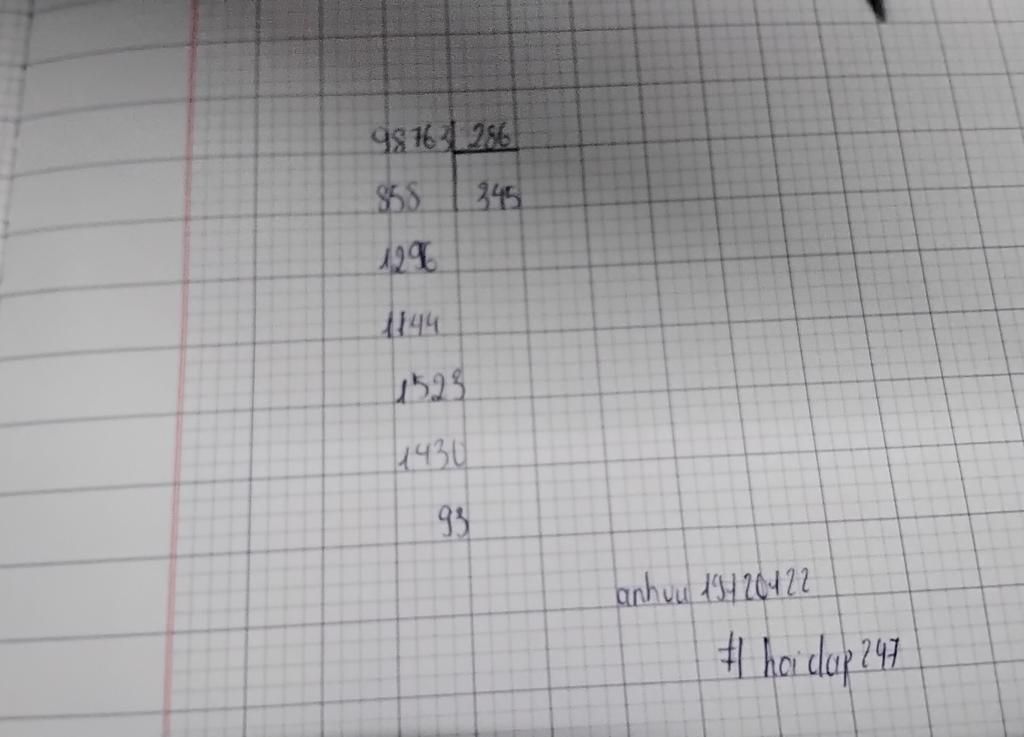 98763 286
858 345
1296
1144
1523
1430
93
anhvu
# hoidap247